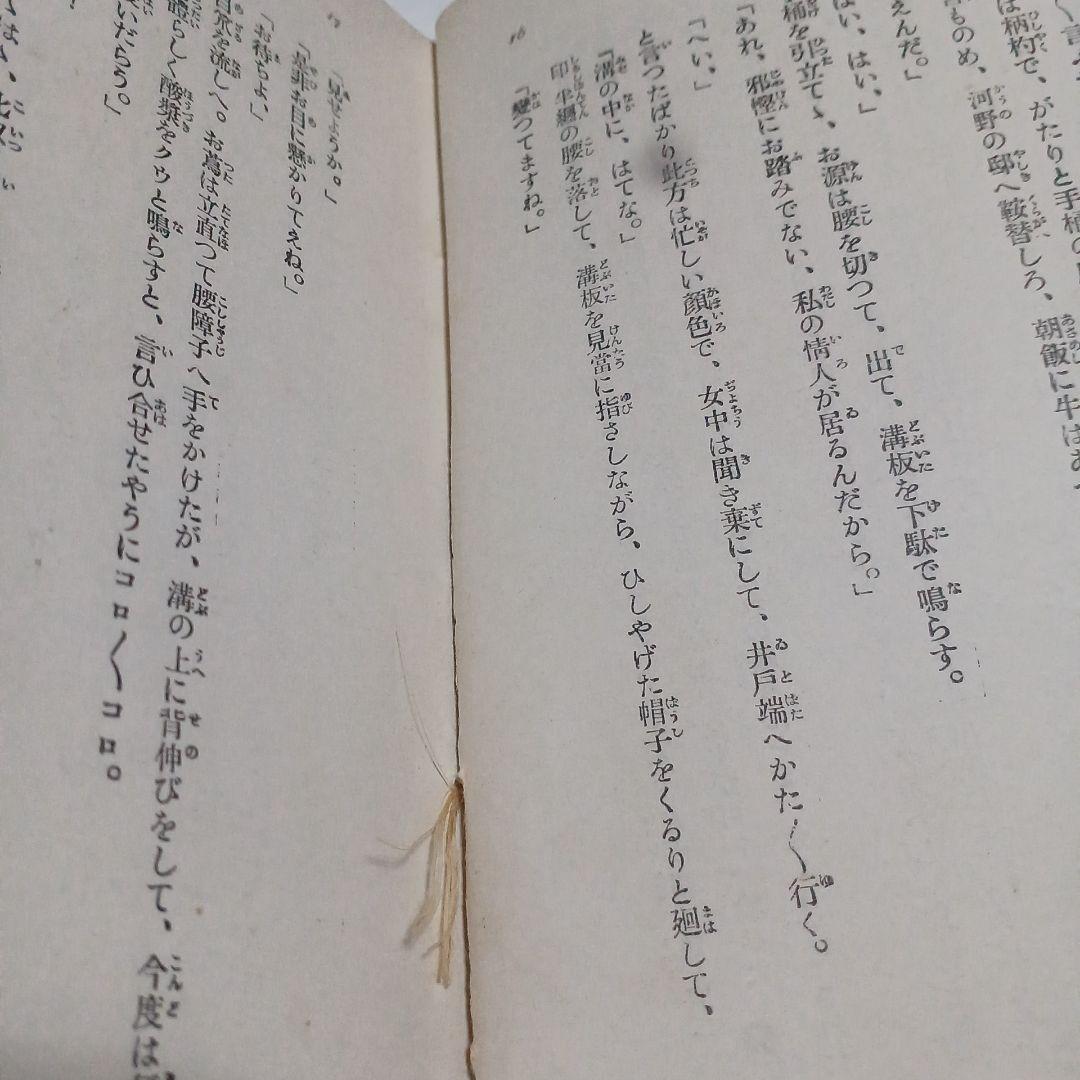 は柄杓で、がたりと手桶の
ものめ、河野の邸へ鞍替しろ、朝飯に牛はあ
えんだ。」
はい、はい。」
桶を引立てゝ、お源は腰を切つて、出て、溝板を下駄で鳴らす。
「あれ、邪慳にお踏みでない、私の情人が居るんだから。」
「へい。」
と言つたばかり此方は忙しい顔色で、女中は聞き棄にして、井戸端へかた〱行く。
「溝の中に、はてな。」
印半纏の腰を落して、溝板を見當に指さしながら、ひしやげた帽子をくるりと廻して、
「變つてますね。」
16
17
「見せようか。」
「是非お目に懸かりてえね。」
「お待ちよ、」
目笊を流しへ。お蔦は立直つて腰障子へ手をかけたが、溝の上に背伸びをして、今度は
らしく酸漿をクウと鳴らすと、言ひ合せたやうにコロ〱コロ。
いだらう。」